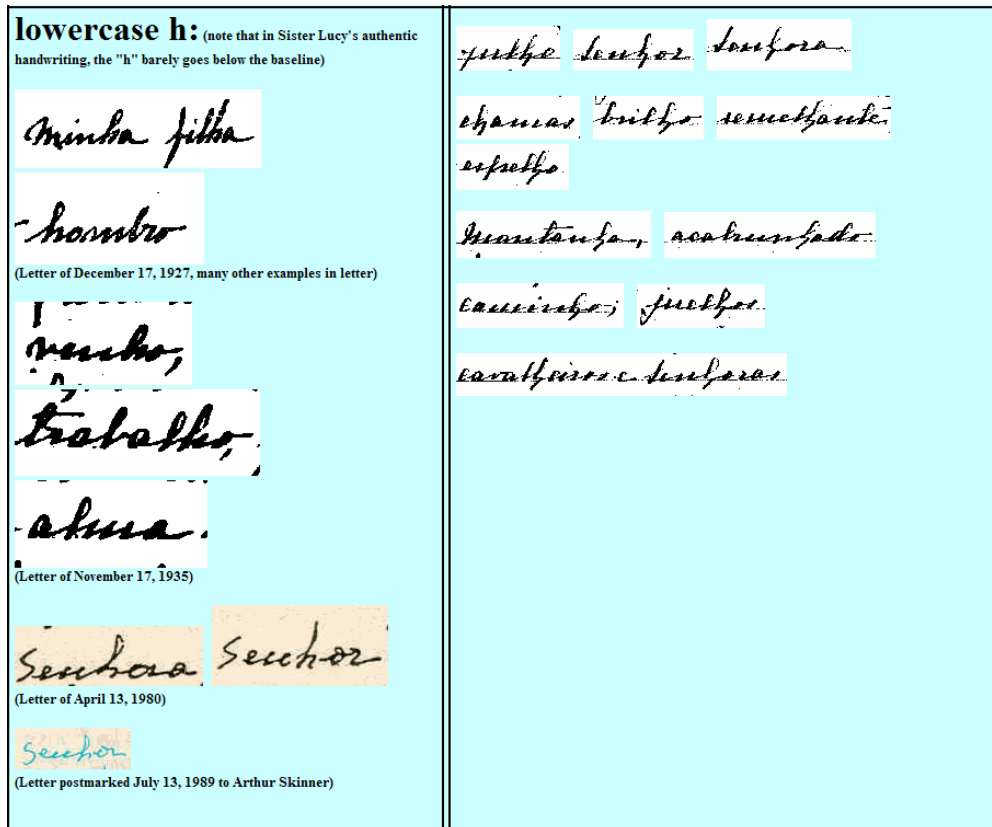 lowercase h: (note that in Sister Lucy's authentic
handwriting, the "h" barely goes below the baseline)
minha filha
hombro
(Letter of December 17, 1927, many other examples in letter)
venho,
trabalho,
alma.
(Letter of November 17, 1935)
Senhora Senhor
(Letter of April 13, 1980)
Senhor
(Letter postmarked July 13, 1989 to Arthur Skinner)
julho Senhor Senhora
chamas brilho semelhante
espelho
Montanha, acabrunhado
caminho; juelhos
cavalheiros e senhoras